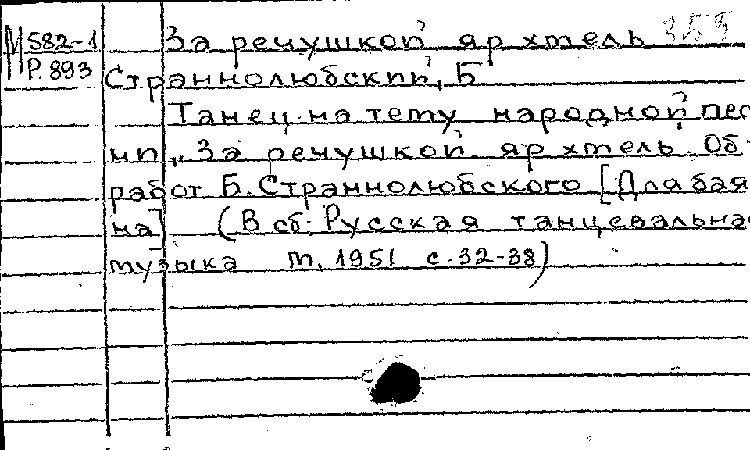 М 582-1 За речушкой яр хмель 353
Р. 893 Страннолюбский, Б
Танец на тему народной пес
ни „За речушкой яр хмель. Об
работ Б. Страннолюбского [Для бая
на] (В сб: Русская танцевальна
музыка М, 1951 с. 32-38)